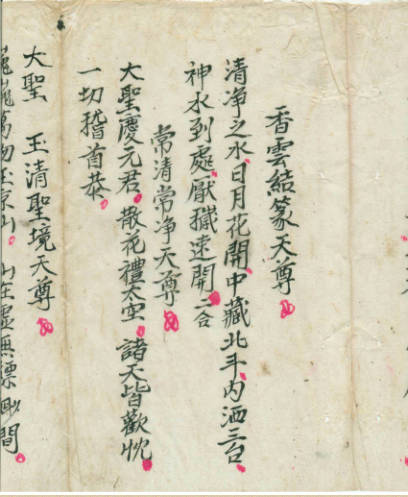 香雲結篆天尊
清净之水日月花開中藏北斗內洒三台
神水到處厭獙速開二合
常清常净天尊
大聖慶元君散花禮太空諸天皆歡忱
一切稽首恭
大聖 玉清聖境天尊
巍巍 山 虛無縹 間